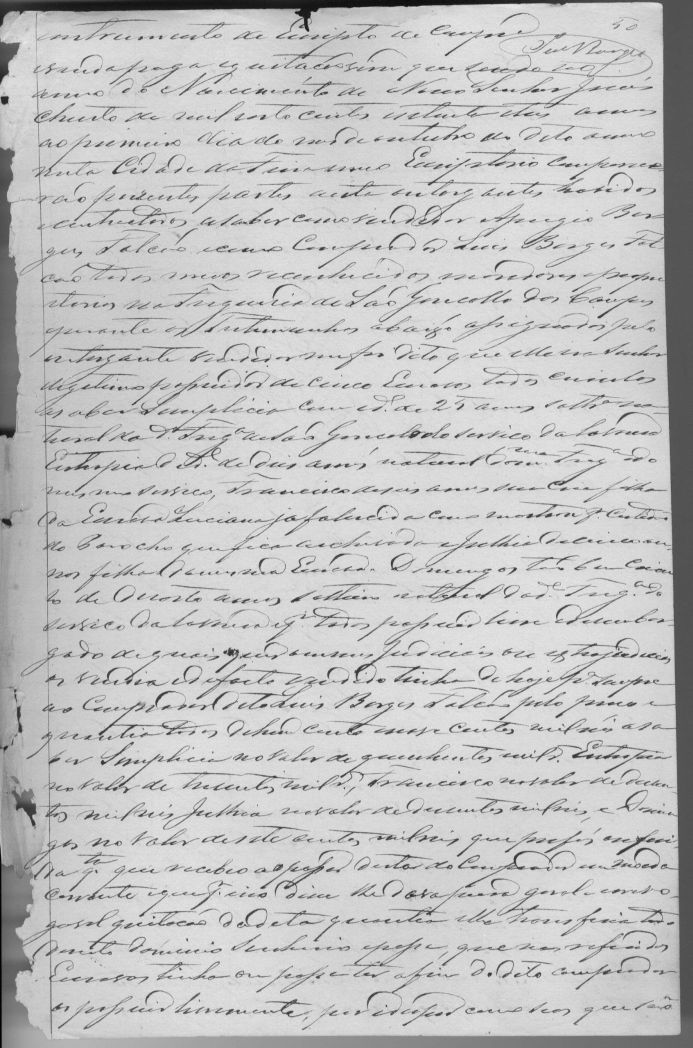 50
instrumento de Escripto de Compra
venda paga e quitação sim que sendo no
anno do Nascimento de Nosso Senhor Jesus
Christo de mil oito centos e setenta e annos
ao primeiro dia do mes de outubro do dito anno
nesta Cidade da Feira em meu Escriptorio comparece-
rão presentes partes a esta outorgantes havidos
e contractados, a saber como vendedor Aprigio Bor-
ges Falcão e como Comprador Luis Borges Fal-
cão todos meos reconhecidos moradores e proprie-
tarios na Freguesia de São Gonçallo dos Campos
perante as testemunhas abaixo assignados pelo
outorgante vendedor me foi dito que elle era Senhor
legitimo possuidor de cinco Escravos todos
a saber Simplicia com id.e de 25 annos soltr.a na-
tural da d.a Freg.a de São Gonçalo do serviço da lavoura
Eutropia de id.e de dois annos natural da mesma Freg.a e do
mesmo serviço, Francisco de seis annos filho
da Escrava Luciana ja falecida como mostrou p.r certidão
do Parocho que fica archivada e Julhia de cinco an-
nos filha da mesma Escrava e Domingos
de desoito annos solteiro natural da d.a Freg.a do
serviço da lavoura e q.e todos possue livre e desembar-
gado de quaes quer onus judiciais ou extrajudiciais
os vendia e de facto vendido tinha de hoje p.a sempre
ao Comprador dito Luis Borges Falcão pelo preço e
quantia de hum conto nove centos mil reis a sa-
ber Simplicia no valor de quinhentos mil r.s Eutropia
no valor de trezentos mil r.s, Francisco no valor de duzen-
tos mil reis Julhia no valor de duzentos mil reis, e Domin-
gos no valor de sete centos mil reis que
da q.l que recebeo ao passar desta do Comprador em moeda
corrente e que p.r isso disse lhe dava plena geral e
gosal quitação da dita quantia e lhe transferia todo
direito dominio Senhorio e posse, que nos referidos
Escravos tinha ou possa ter afim do dito comprador
os possuir livremente, por si como seos que são